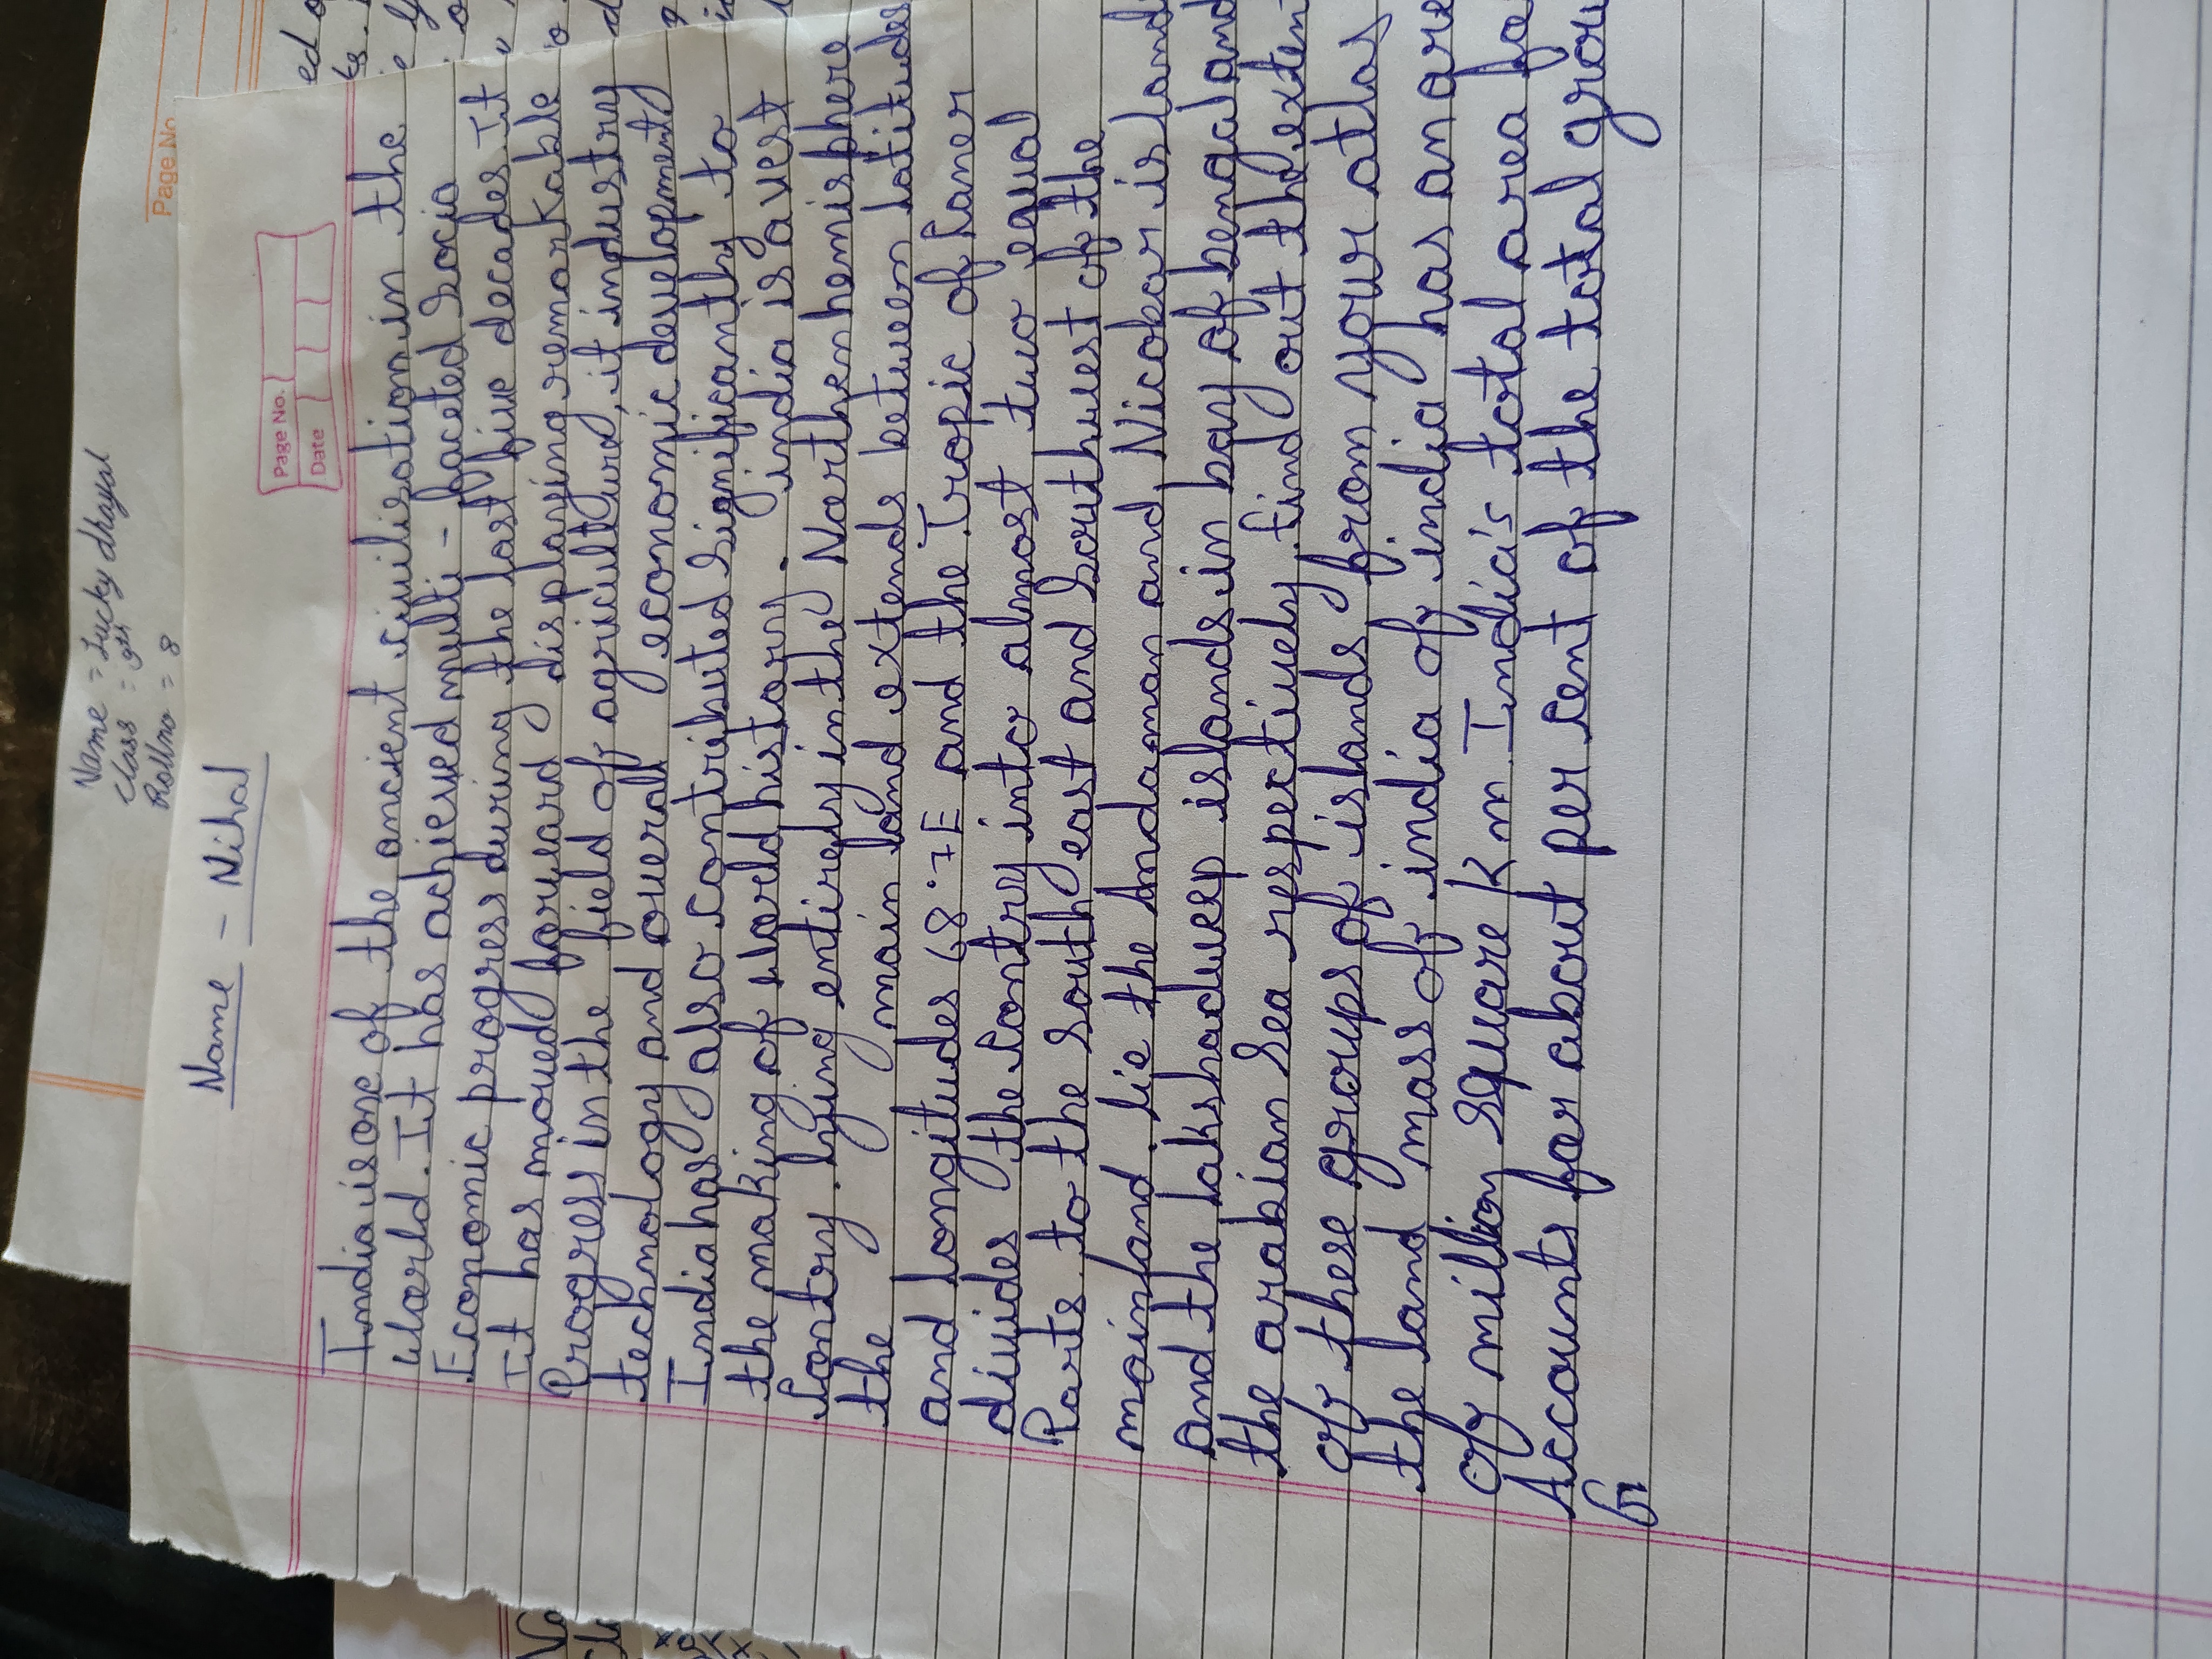 Page No
Name = Lucky dhayal
Class = 9th
Rollno = 8
Page No.
Date
Name - Nihal
India is one of the ancient civilisation in the
World. It has achieved multi - faceted Socio
Economic progress during the last five decades. It
It has moved forward displaying remarkable
Progress in the field of agriculture, it industry
technology and overall economic development
India has also contributed significanthy to
the making of World history. india is a vest
Contry. lying entirely in the Northen hemisphere
the main land extends between latitudes
and longitudes 68.7E and the Tropic of Caner
divides the Contry into almost two equal
Parts. to the South east and Southwest of the
mainland. lie the Andaman and Nicobar island
And the lakshadweep islands in bay of bengal and
the arabian Sea respectively. find out the exten
of these groups of islands from your atlas
the land mass of india of india has an are
of million square Km. India's total area for
Accounts for about per cent of the total grou